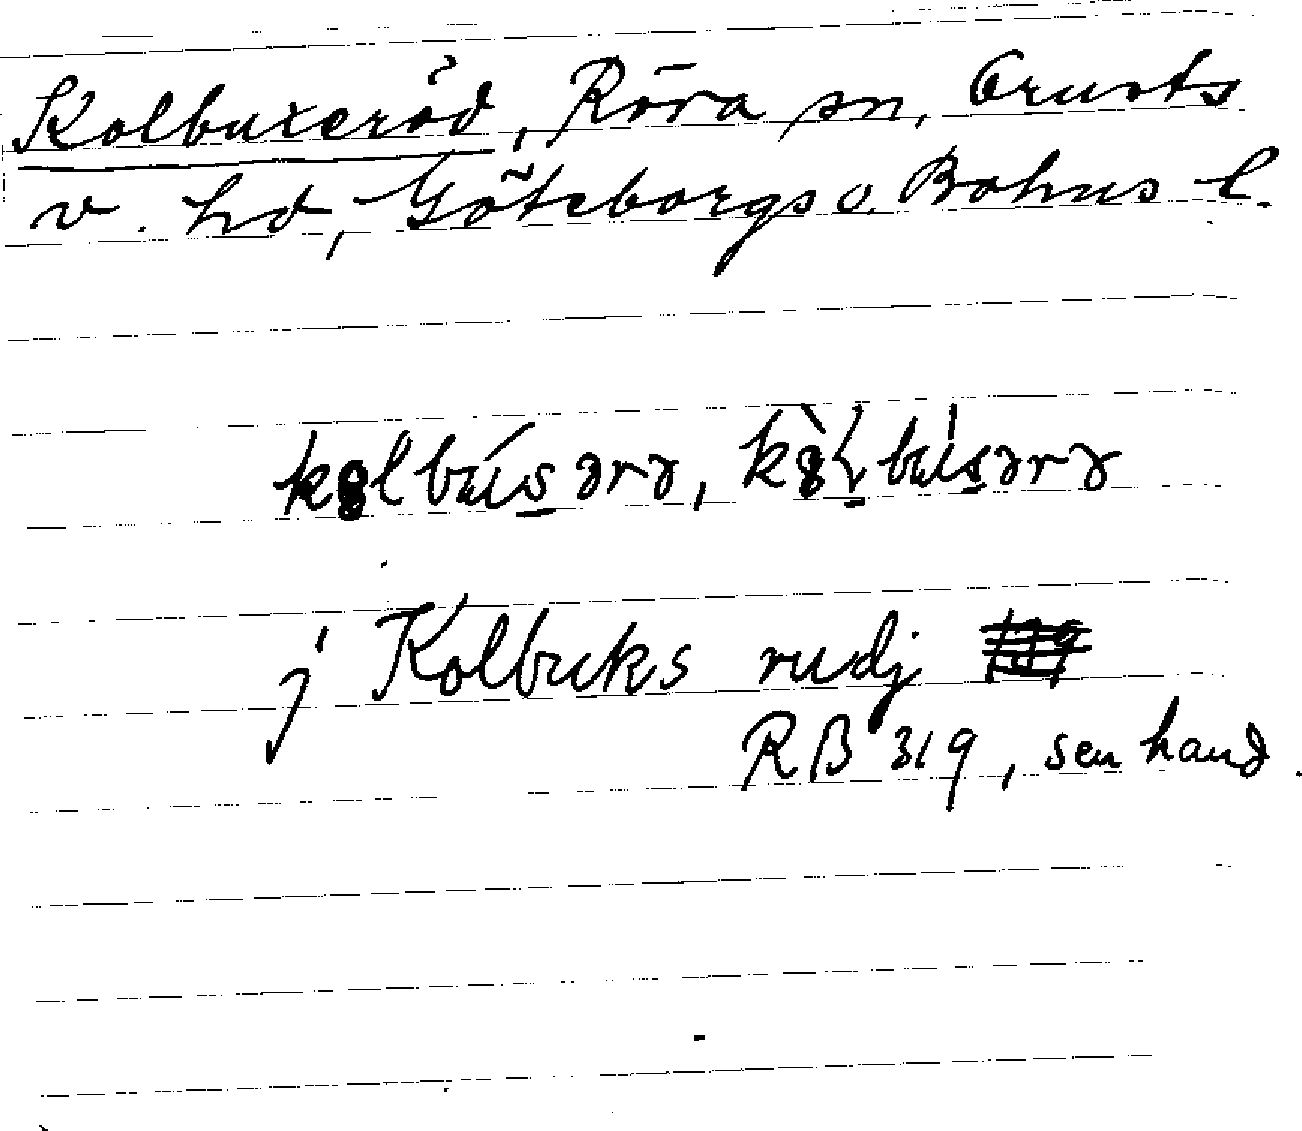 Kolbuxeröd, Röra sn, Orusts
v. hd, Göteborgs o. Bohus l.
j Kolbuks rudj
RB 319, sen hand.